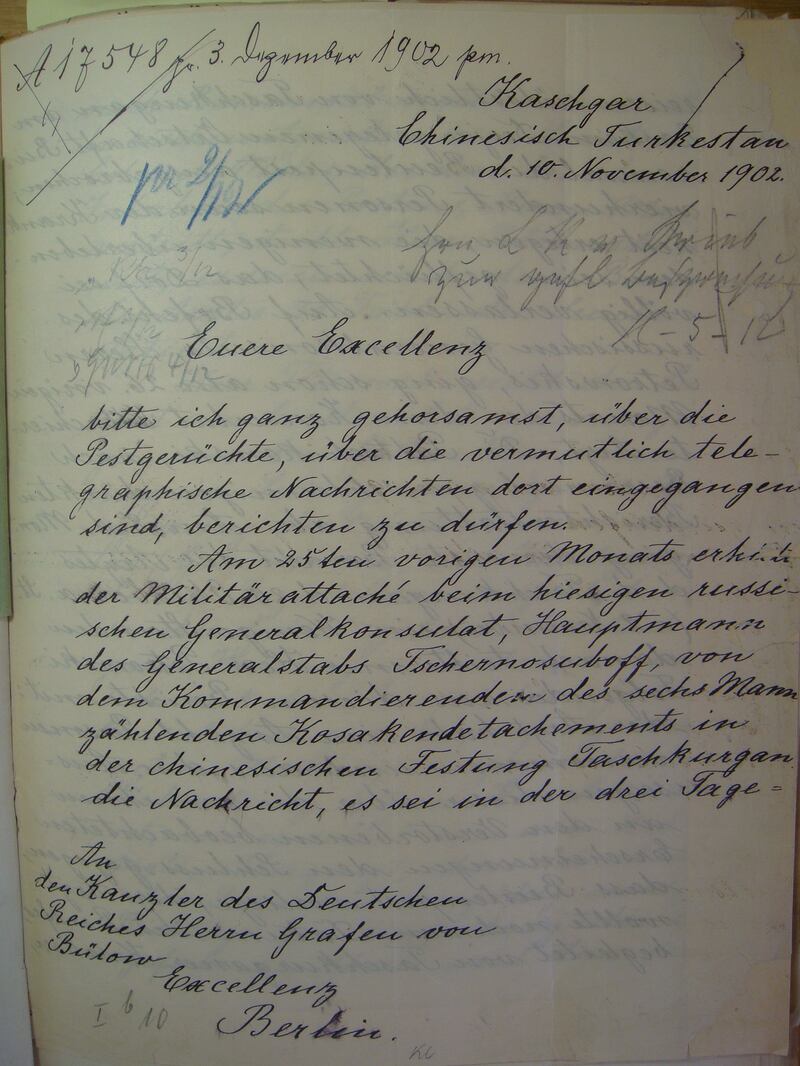 A 17548 pr. 3. Dezember 1902 pm.
Kaschgar
Chinesisch Turkestan
d. 10. November 1902.
pr 2/12
3/12
zur gefl.
5 12
4/12
Euere Excellenz
bitte ich ganz gehorsamst, über die
Pestgerüchte, über die vermutlich tele-
graphische Nachrichten dort eingegangen
sind, berichten zu dürfen.
Am 25ten vorigen Monats erhielt
der Militärattaché beim hiesigen russi-
schen Generalkonsulat, Hauptmann
des Generalstabs Tschernosuboff, von
dem Kommandierenden des sechs Mann
zählenden Kosakendetachements in
der chinesischen Festung Taschkurgan
die Nachricht, es sei in der drei Tage=
An
den Kanzler des Deutschen
Reiches Herrn Grafen von
Bülow
Excellenz
Berlin.
I b 10